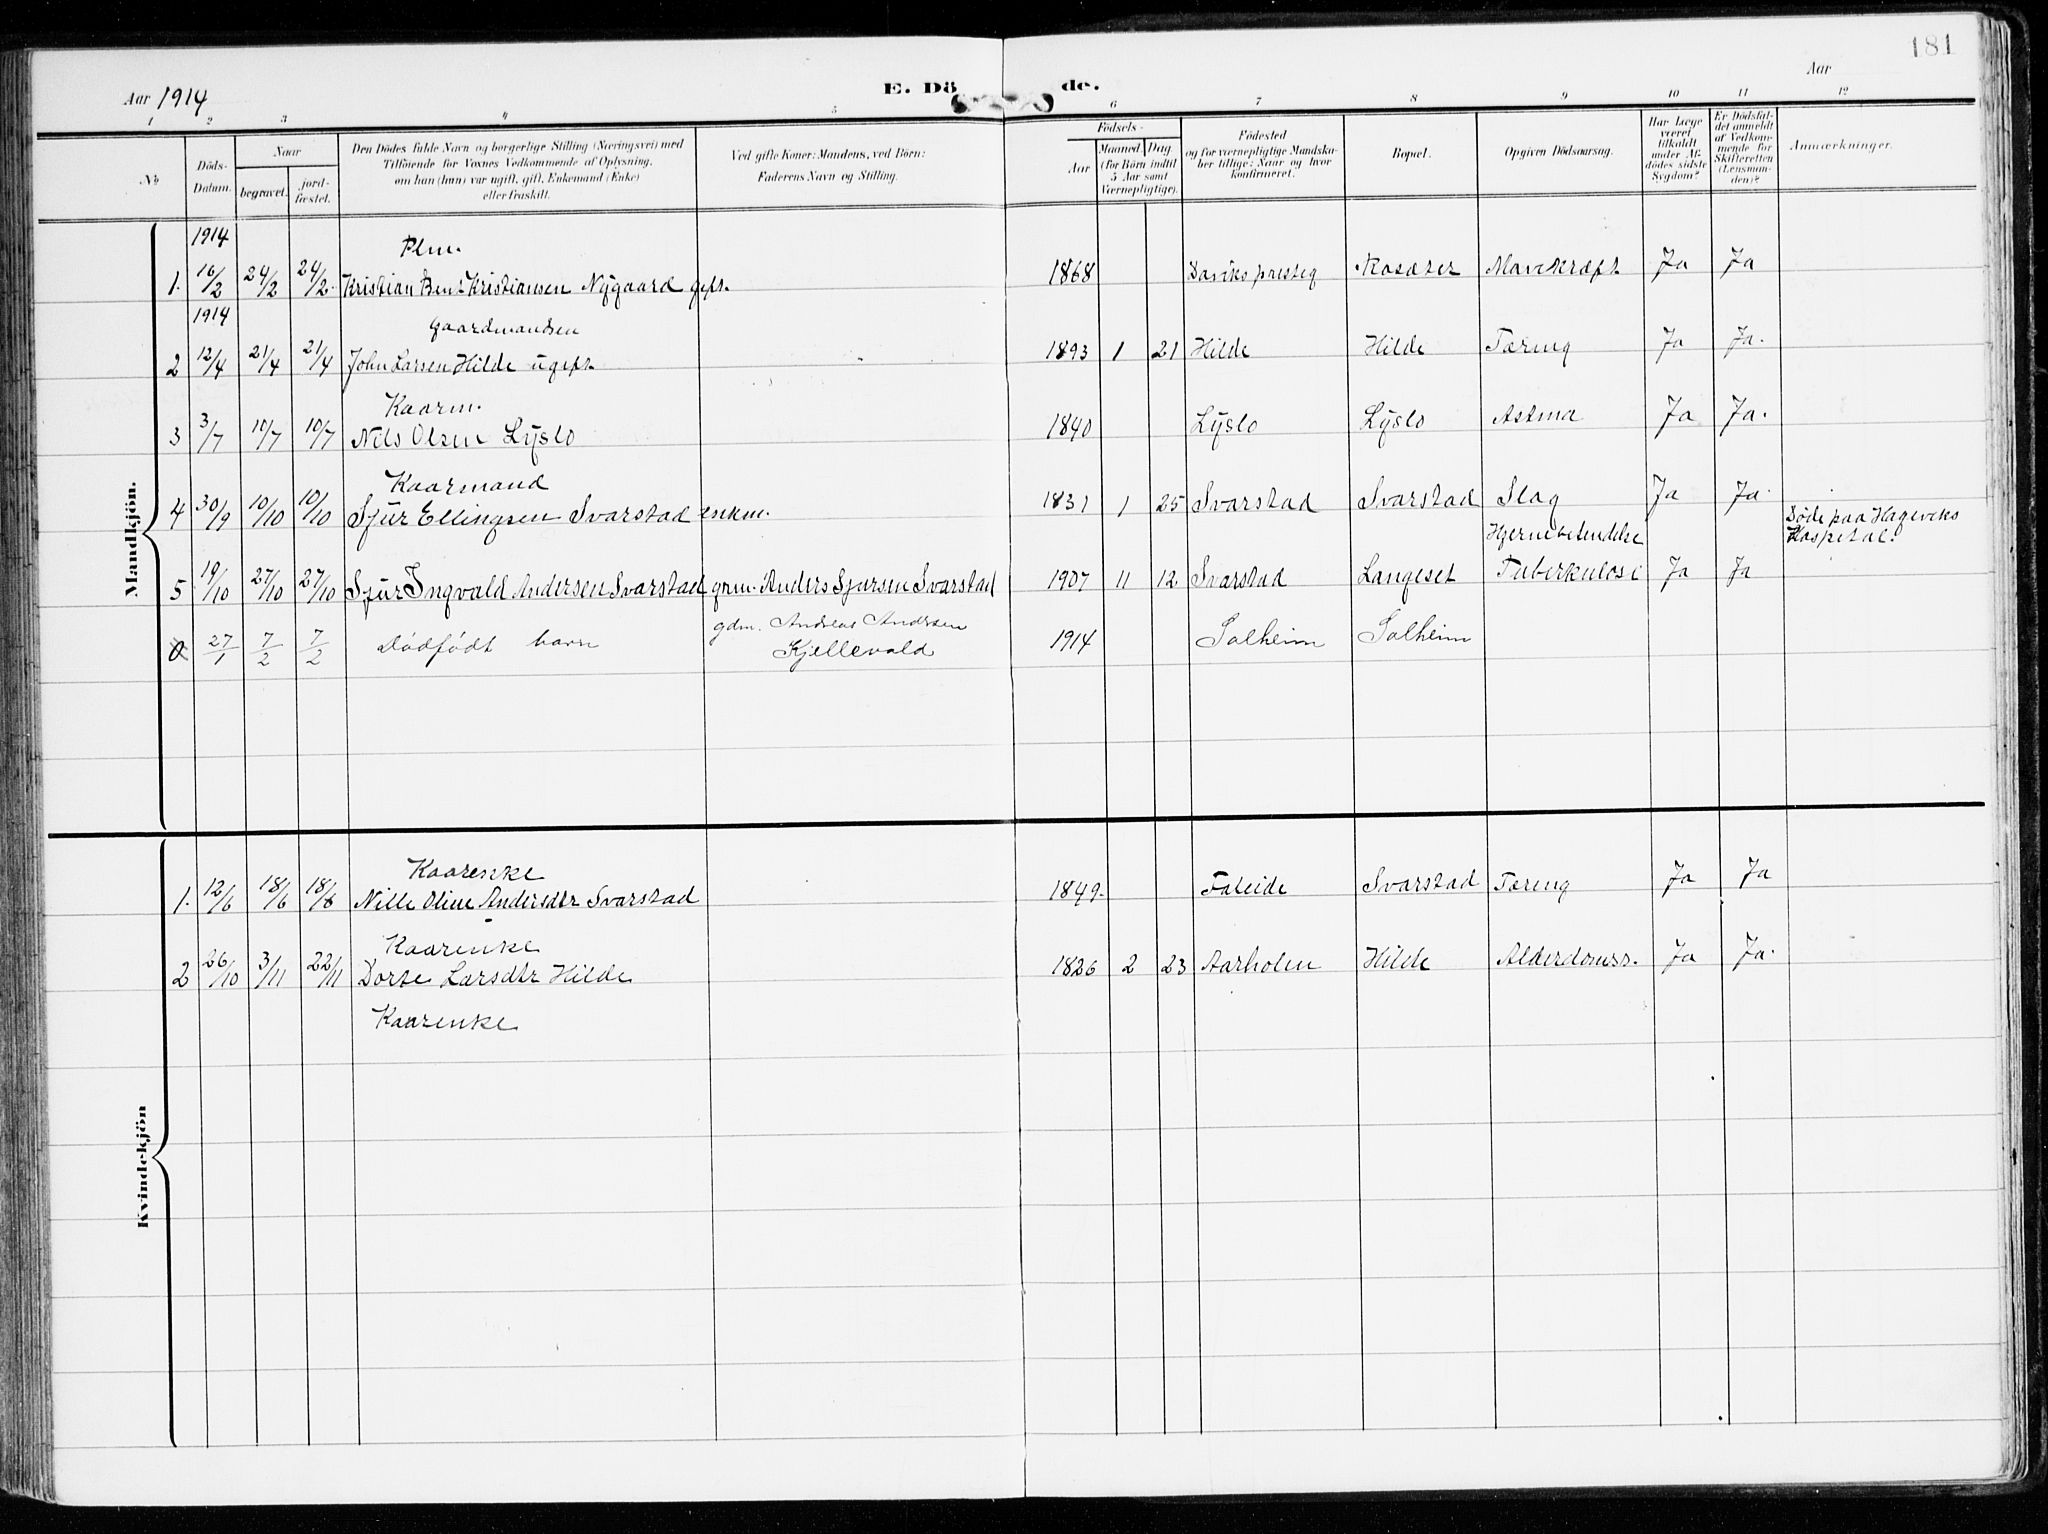 181
Aar 1914
E. Dö de.
Aar
1 2 3 4 5 6 7 8 9 10 11 12
No
Döds-Datum.
Naar
begravet.
jord-fæstet.
Den Dödes fulde Navn og borgerlige Stilling (Næringsvei) med
Tilföiende for Voxnes Vedkommende af Oplysning,
om han (hun) var ugift, gift, Enkemand (Enke)
eller fraskilt.
Ved gifte Koner: Mandens, ved Börn:
Faderens Navn og Stilling.
Födsels-
Aar
Maaned Dag.
(for Börn indtil
5 Aar samt
Værnepligtige).
Födested
og for værnepligtige Mandska-
ber tillige: Naar og hvor
konfirmeret.
Bopæl.
Opgiven Dödsaarsag.
Har Læge
været
tilkaldt
under Af-
dödes sidste
Sygdom?
Er Dödsfal-
det anmeldt
af Vedkom-
mende for
Skifteretten
(Lensman-
den)?
Anmærkninger.
Mandkjön.
1914 Plm.
1. 16/2 24/2 24/2. Kristian Ben: Kristiansen Nygaard gift. 1868 Daviks presteg Rosæter Mavekræft Ja Ja
1914 Gaardmandsen
2 12/4 21/4 21/4 John Larsen Hilde ugift. 1893 1 21 Hilde Hilde Tæring Ja Ja.
Kaarm.
3 3/7 10/7 10/7 Nils Olsen Lyslo 1840 Lyslo Lyslo Astma Ja Ja.
Kaarmand
4 30/9 10/10 10/10 Sjur Ellingsen Svarstad enkm. 1831 1 25 Svarstad Svarstad Slag Ja Ja.
Hjernebetendelse Döde paa Hageviks
Hospital.
5 19/10 27/10 27/10 Sjur Ingvald Andersen Svarstad grm. Anders Sjursen Svarstad 1907 11 12 Svarstad Langeset Tuberkulose Ja Ja
0 27/1 7/2 7/2 Dødfødt barn gdm. Andreas Andersen
Kjellevold 1914 Solheim Solheim
Kvindekjön
Kaarenke
1. 12/6 18/6 18/6 Nille Oline Andersdtr Svarstad 1849. Faleide Svarstad Tæring Ja Ja
Kaarenke
2 26/10 3/11 22/11 Dorte Larsdtr Hilde 1826 2 23 Aarholen Hilde Alderdomss. Ja Ja.
Kaarenke